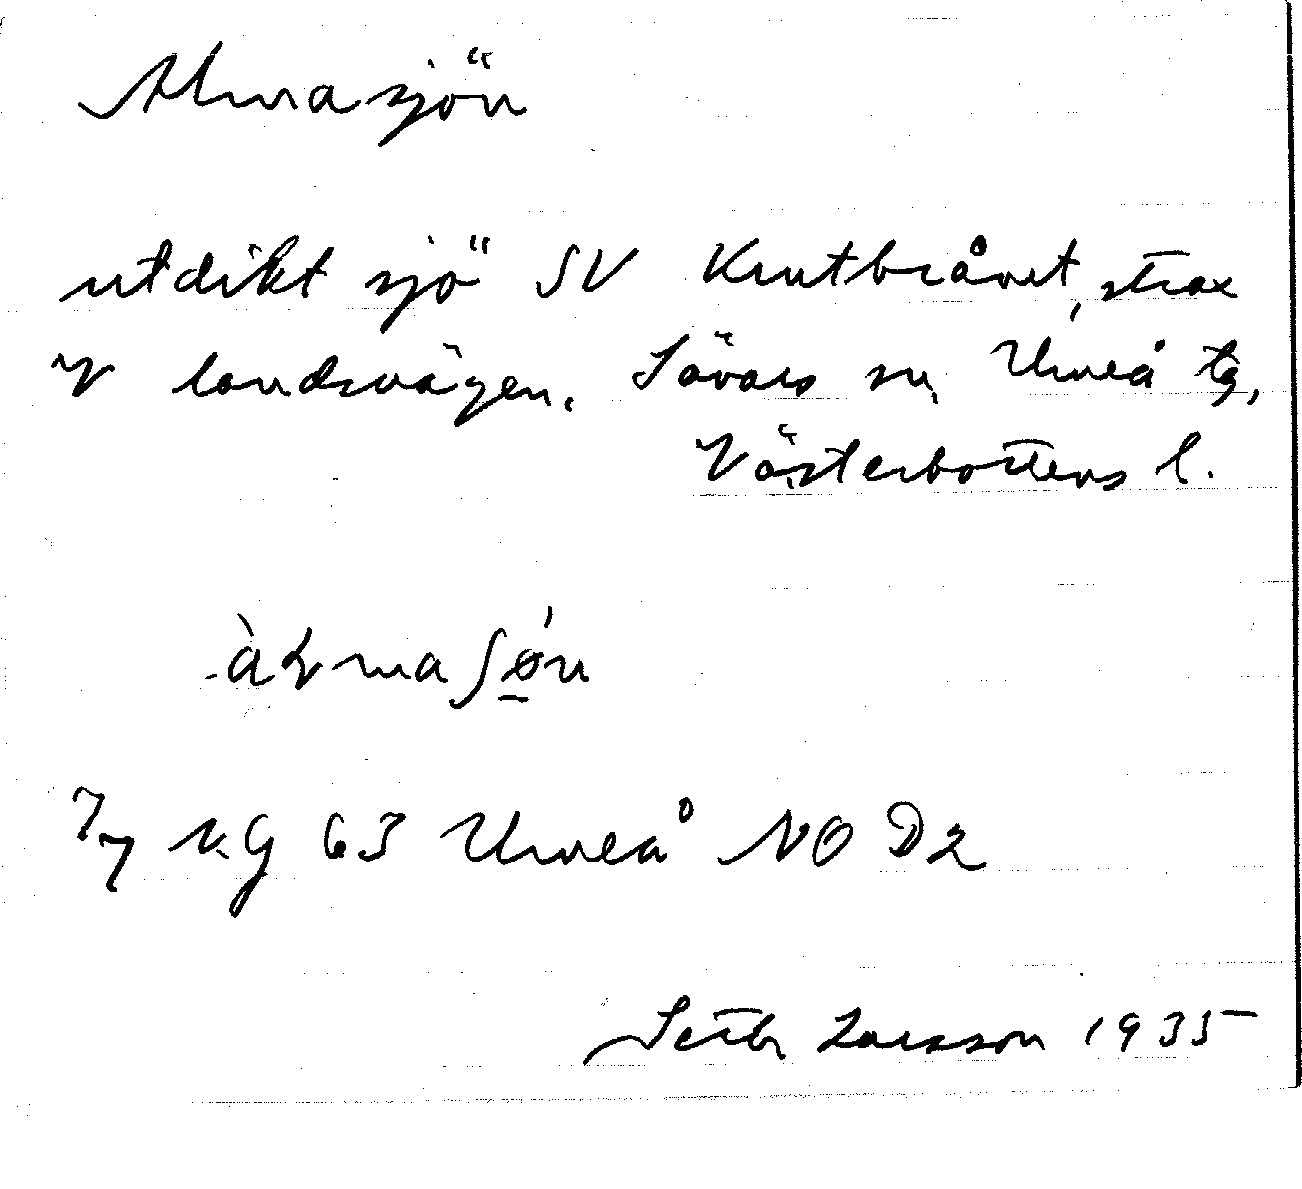 Almasjön
utdikt sjö SV Krutbrånet, strax
V landsvägen. Sävars sn, Umeå tg,
Västerbottens l.
7/7 N.G 63 Umeå NO D2
Seth Larsson 1935